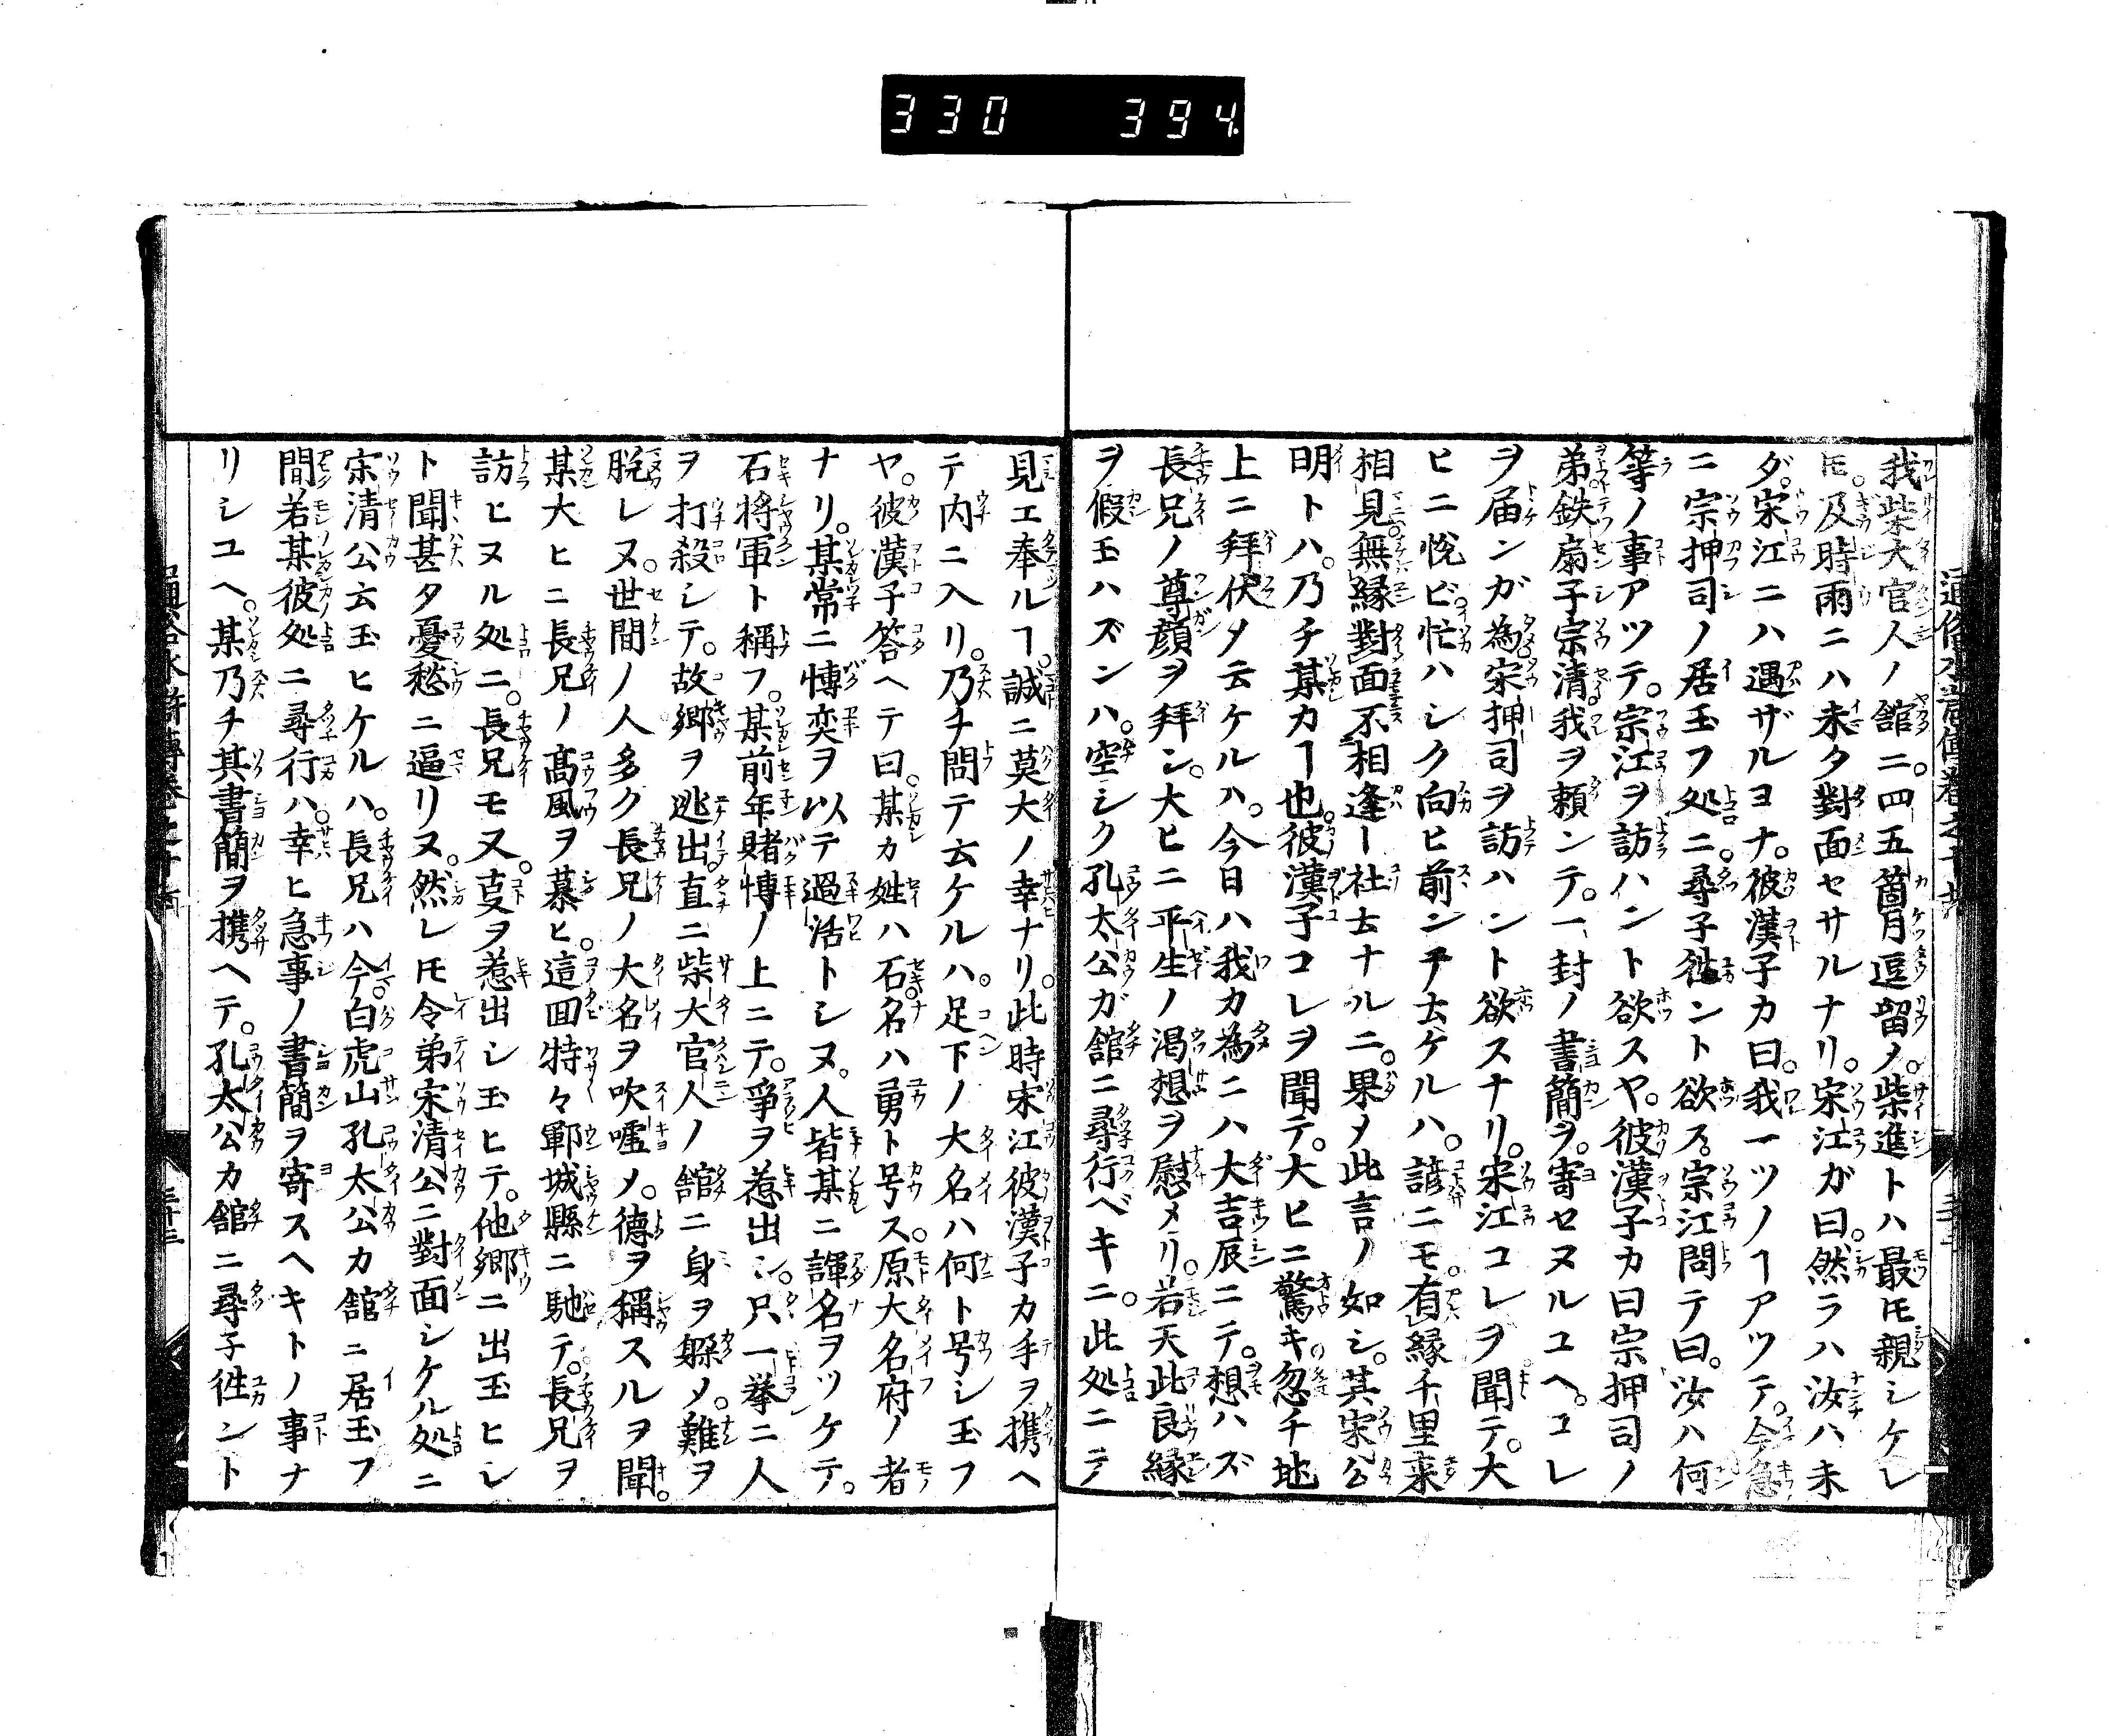 330 394
我柴大官人ノ舘ニ。四五箇月逗留メ。柴進トハ最モ親シケレ
𪜈。及時雨ニハ未タ對面セサルナリ。宋江ガ曰。然ラハ汝ハ未
ダ。宋江ニハ遇ザルヨナ。彼漢子カ曰。我一ツノヿアツテ。今急
ニ宗押司ノ居玉フ処ニ。尋子徃ント欲ス。宗江問テ曰。汝ハ何
等ノ事アツテ。宗江ヲ訪ハント欲スヤ。彼漢子カ曰宗押司ノ
弟。鉄扇子宗清。我ヲ頼ンテ。一封ノ書簡ヲ。寄セヌルユヘ。コレ
ヲ届ンガ為。宋押司ヲ訪ハント欲スナリ。宋江コレヲ聞テ。大
ヒニ悦ビ。忙ハシク向ヒ前ンテ云ケルハ。諺ニモ。有縁千里来
相見。無縁對面不相逢ー社云ナルニ。果メ此言ノ如シ。其宋公
明トハ。乃チ某カヿ也。彼漢子コレヲ聞テ。大ヒニ驚キ忽チ地
上ニ拜伏メ云ケルハ。今日ハ我カ為ニハ大吉辰ニテ。想ハズ
長兄ノ尊顔ヲ拜ン。大ヒニ平生ノ渇想ヲ慰メリ。若天此良縁
ヲ假玉ハズンハ。空シク孔太公ガ舘ニ尋行ベキニ。此処ニテ
見エ奉ルヿ。誠ニ莫大ノ幸ナリ。此時宋江彼漢子カ手ヲ携ヘ
テ内ニ入リ。乃チ問テ云ケルハ。足下ノ大名ハ何ト号シ玉フ
ヤ。彼漢子答ヘテ曰。某カ姓ハ石名ハ勇ト号ス。原大名府ノ者
ナリ。某常ニ愽奕ヲ以テ過活トシヌ。人皆某ニ諢名ヲツケテ。
石将軍ト稱フ。某前年賭愽ノ上ニテ。爭ヲ惹出シ。只一拳ニ人
ヲ打殺シテ。故郷ヲ逃出。直ニ柴大官人ノ舘ニ身ヲ躱メ。難ヲ
脱レヌ。世間ノ人多ク長兄ノ大名ヲ吹嘘メ。德ヲ稱スルヲ聞。
某大ヒニ長兄ノ髙風ヲ慕ヒ。這回特々鄆城縣ニ馳テ。長兄ヲ
訪ヒヌル処ニ。長兄モ又。㕝ヲ惹出シ玉ヒテ。他郷ニ出玉ヒシ
ト聞甚タ憂愁ニ逼リヌ。然レ𪜈令弟宋清公ニ對面シケル処ニ
宗清公云玉ヒケルハ。長兄ハ今。白虎山孔太公カ舘ニ居玉フ
間若某彼処ニ尋行ハ。幸ヒ急事ノ書簡ヲ寄スヘキトノ事ナ
リシユヘ。某乃チ其書簡ヲ携ヘテ。孔太公カ舘ニ尋子徃ント